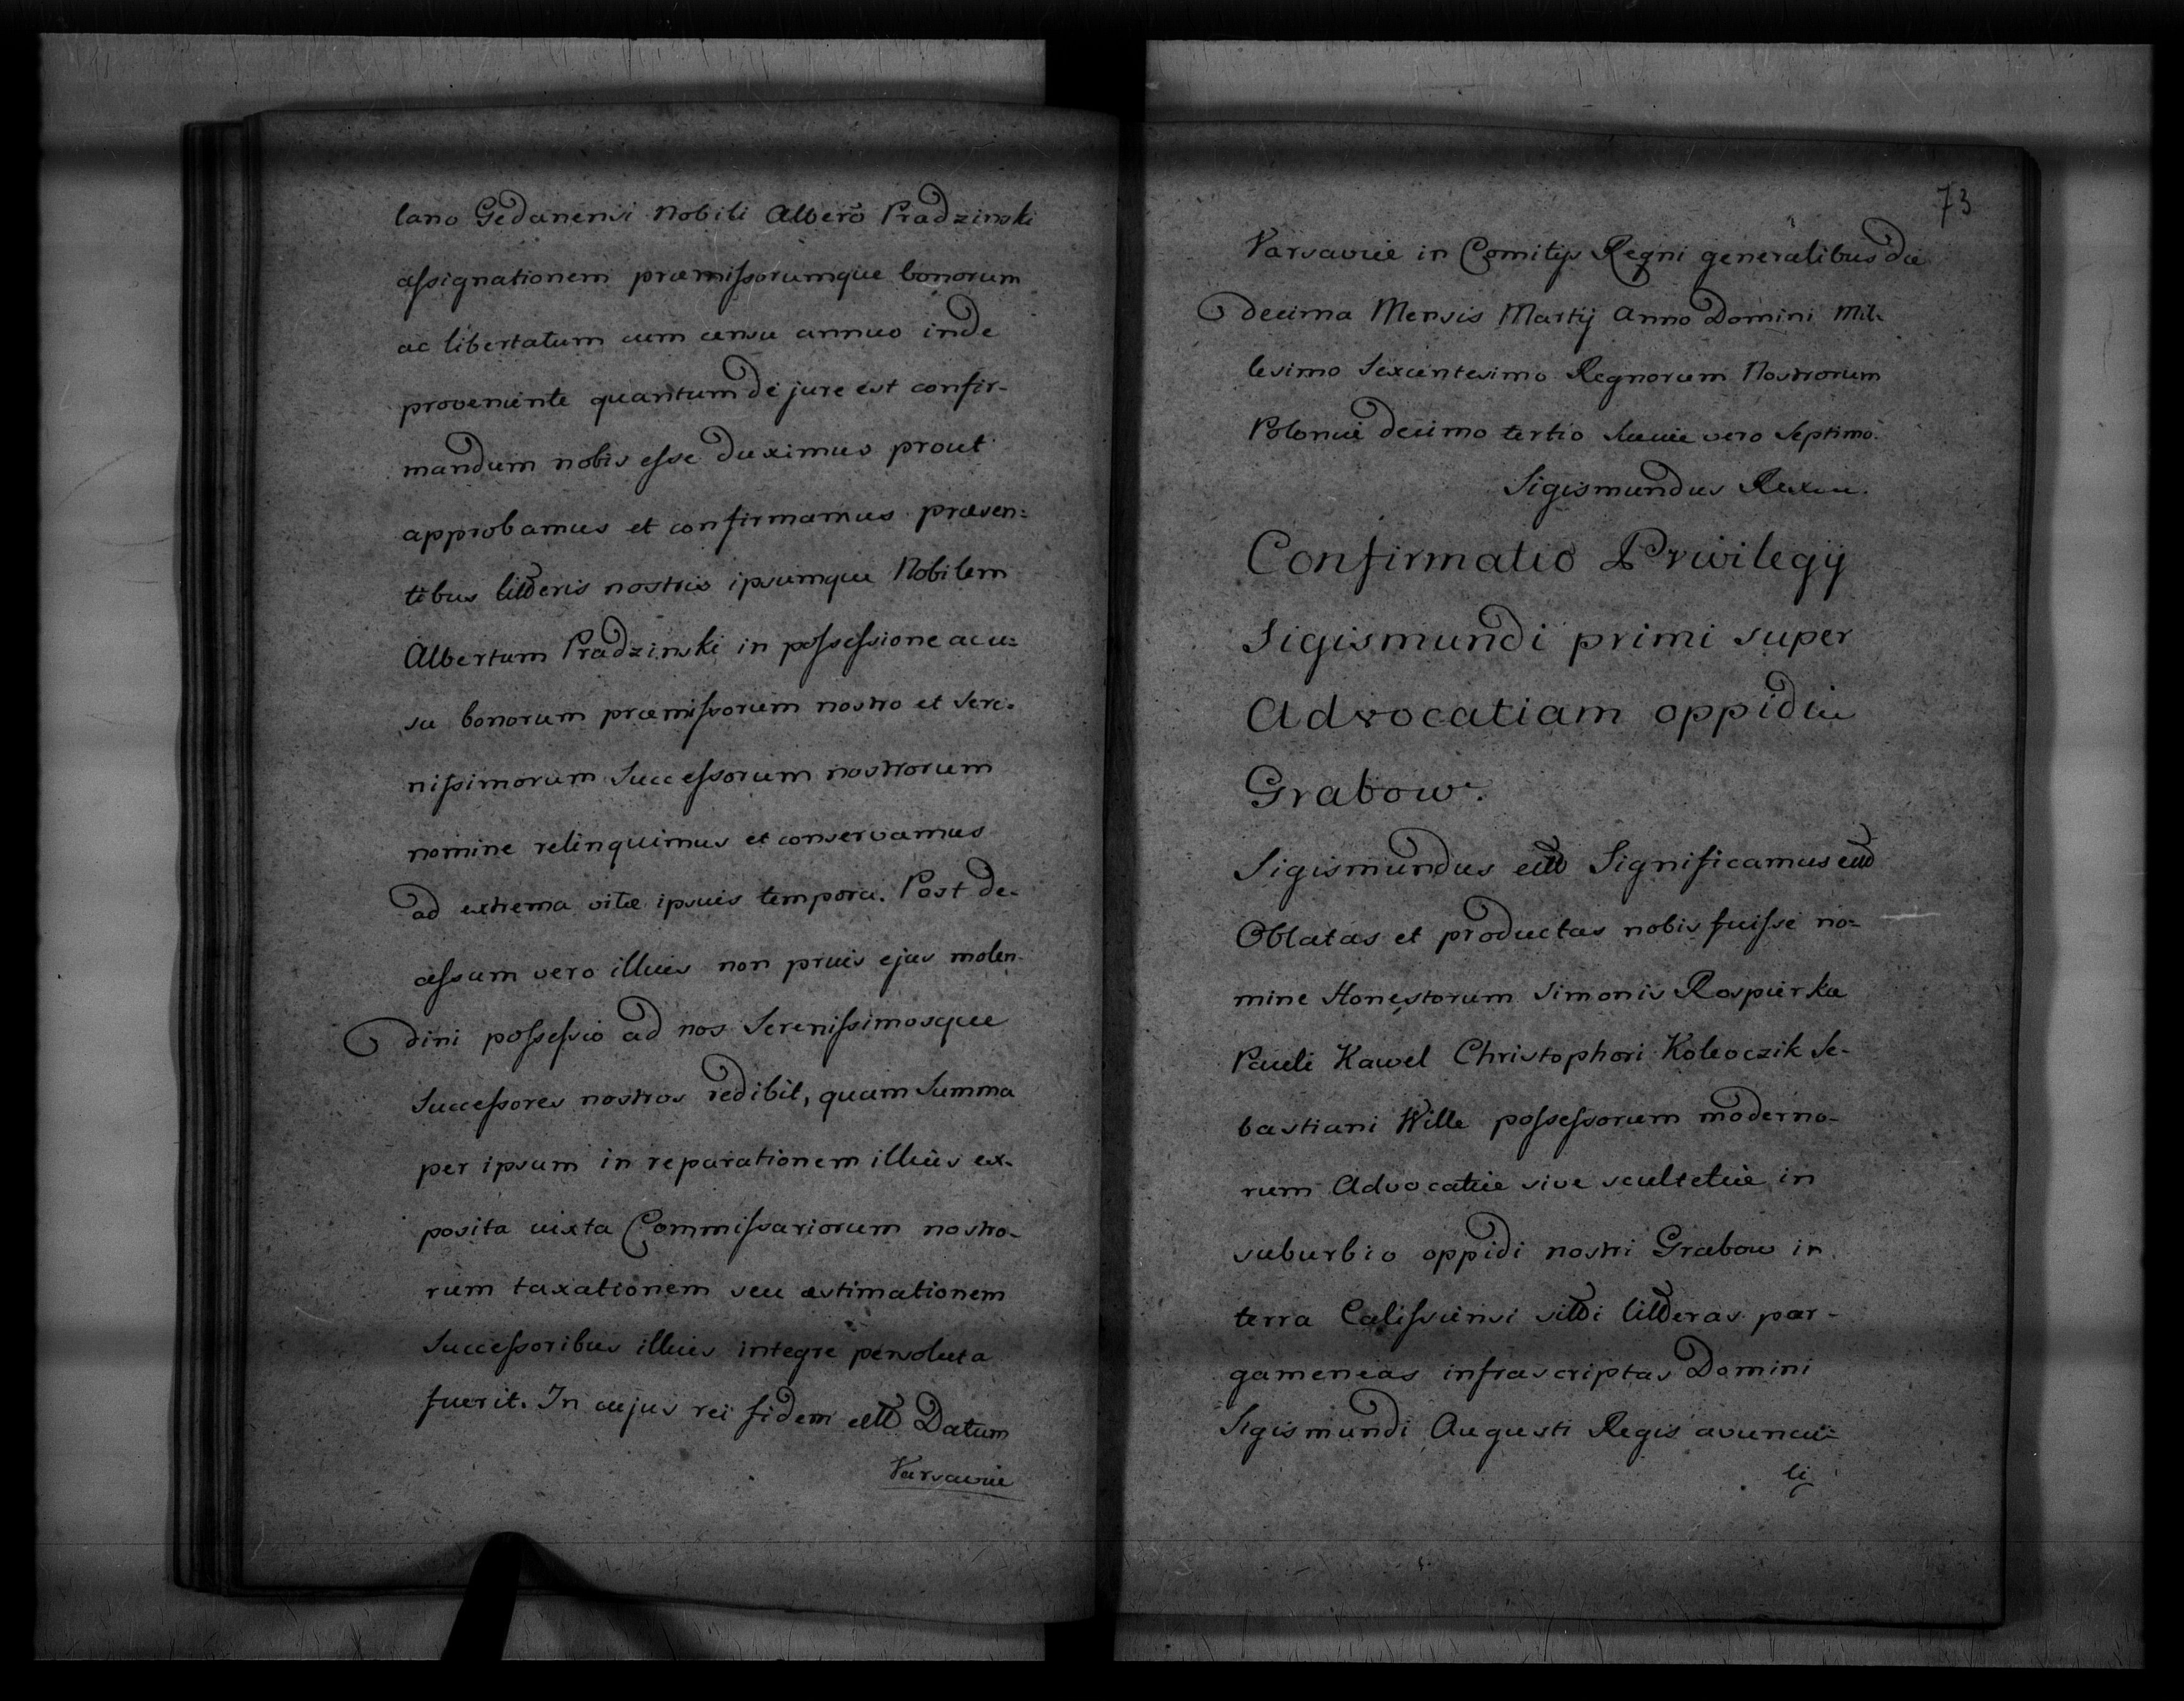 lano Gedanensi Nobili Albero Pradzinski
assignationem præmissorumque bonorum
ac libertatum cum censu annuo inde
proveniente quantum de jure est confir-
mandum nobis esse duximus prout
approbamus et confirmamus præsen=
tibus litteris nostris ipsumque Nobilem
Albertum Pradzinski in possessione ac u=
su bonorum præmissorum nostro et Sere-
nissimorum Successorum nostrorum
nomine relinquimus et conservamus
ad extrema vitæ ipsius tempora. Post de-
cessum vero illius non prius ejus molen-
dini possessio ad nos Serenissimosque
Successores nostros redibit, quam Summa
per ipsum in reparationem illius ex-
posita iuxta Commissariorum nostro-
rum taxationem seu æstimationem
Successoribus illius integre persoluta
fuerit. In cujus rei fidem ett Datum
Varsaviæ
73
Varsaviæ in Comitijs Regni generalibus die
decima Mensis Martij Anno Domini Mil-
lesimo Sexcentesimo Regnorum Nostrorum
Poloniæ decimo tertio Sueciæ vero Septimo.
Sigismundus Rex
Confirmatio Privilegij
Sigismundi primi super
Advocatiam oppidi
Grabow.
Sigismundus ett Significamus ett
Oblatas et productas nobis fuisse no=
mine Honestorum Simonis Rospierka
Pauli Kawel Christophori Koleoczik Se-
bastiani Wille possessorum moderno-
rum Advocatiæ sive scultetiæ in
suburbio oppidi nostri Grabow in
terra Calissiensi sitti litteras par-
gameneas infrascriptas Domini
Sigismundi Augusti Regis avuncu=
li